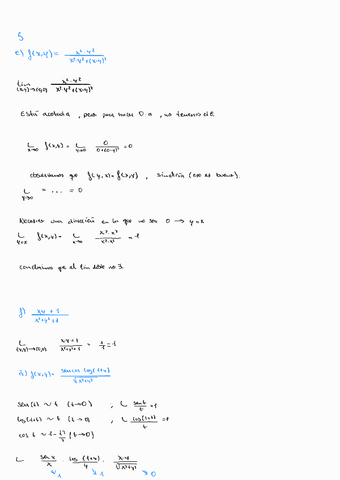 5
e) f(x,y) = x²·y² / (x²·y² + (x-y)²)
lim (x,y)→(0,0) x²·y² / (x²·y² + (x-y)²)
Está acotada, pero para hacer 0·a, no tenemos el
L x→0 f(x,y) = L y→0 0 / (0+(0-y)²) = 0
observamos que f(y,x) = f(x,y), simetría (eso es bueno).
L y→0 = ... = 0
Necesito una dirección en la que no sea 0 → y=x
L y=x f(x,y) = L x→0 x²·x² / x²·x² = 1
concluimos que el lim este no ∃.
f) (xy + 1) / (x²+y²+1)
L (x,y)→(0,0) (x·y+1) / (x²+y²+1) = 1/1 = 1
f(x,y) = log(1+y) / √(x²+y²)
sen(t) ~ t (t→0) ; L sen t / t = 1
log(1+t) ~ t (t→0) ; L log(1+t) / t = 1
cos t ~ 1 - t²/2 (t→0)
L sen x / x · log(1+y) / y · x·y / √(x²+y²)
→1 →1 →0